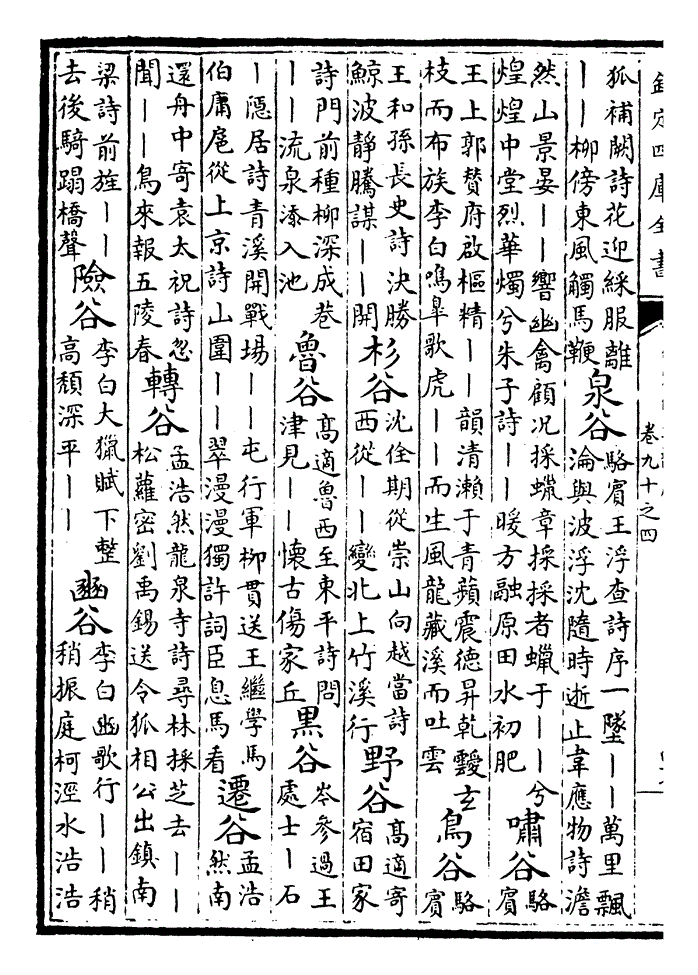 欽定四庫全書
卷九十之四
狐補闕詩花迎綵服離
——柳傍東風觸馬鞭
泉谷
駱賓王浮查詩序一墜——萬里飄
淪與波浮沈隨時逝止韋應物詩澹
然山景晏——響幽禽顧况採蠟章採採者蠟于——兮
煌煌中堂烈華燭兮朱子詩——暖方融原田水初肥
嘯谷
駱
賓
王上郭賛府啟樞精——韻清瀨于青蘋震德昇乾靉玄
枝而布族李白鳴臯歌虎——而生風龍藏溪而吐雲
鳥谷
駱
賓
王和孫長史詩決勝
鯨波靜騰謀——開
杉谷
沈佺期從崇山向越當詩
西從——變北上竹溪行
野谷
高適寄
宿田家
詩門前種柳深成巷
——流泉添入池
魯谷
高適魯西至東平詩問
津見——懷古傷家丘
黒谷
岑參過王
處士—石
—隱居詩青溪開戰場——屯行軍柳貫送王繼學馬
伯庸扈從上京詩山圍——翠漫漫獨許詞臣息馬看
遷谷
孟浩
然南
還舟中寄袁太祝詩忽
聞——鳥來報五陵春
轉谷
孟浩然龍泉寺詩尋林採芝去——
松蘿密劉禹錫送令狐相公出鎮南
梁詩前旌——
去後騎蹋橋聲
險谷
李白大獵賦下整
高頹深平——
豳谷
李白豳歌行——稍
稍振庭柯涇水浩浩